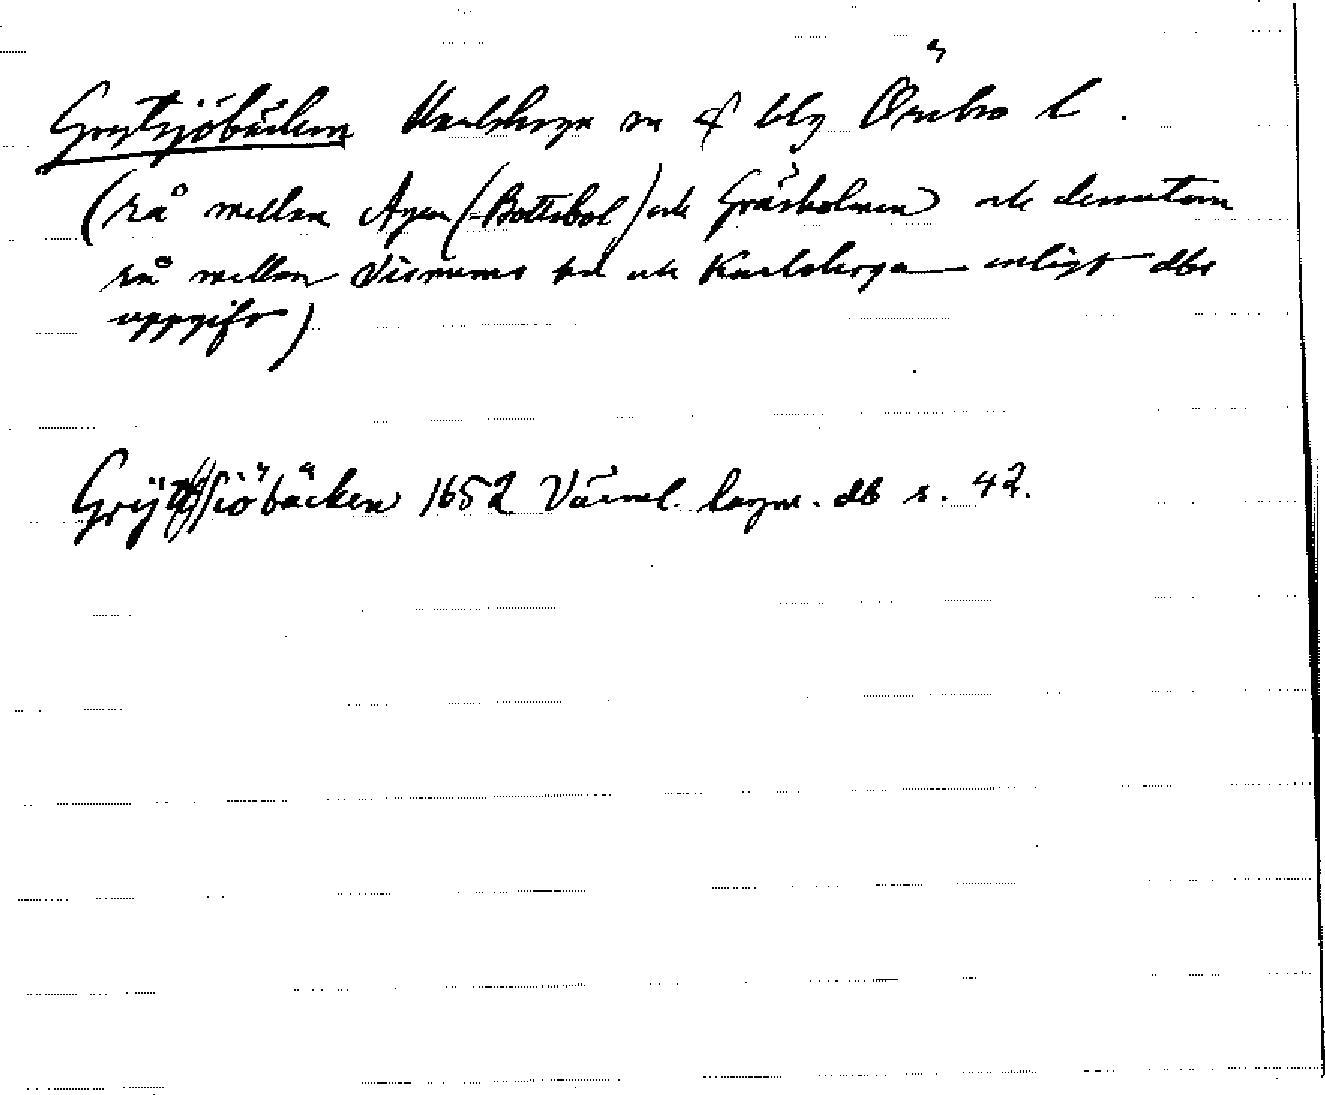 Grytsjöbäcken Karlskoga sn o f blg Örebro l.
(rå mellan Agen (=Bottebol) och Gråsholmen och dessutom
rå mellan Visnums hd och Karlskoga enligt dbs
uppgift)
Grÿttsiöbäcken 1652 Värml. lagm. db s. 42.